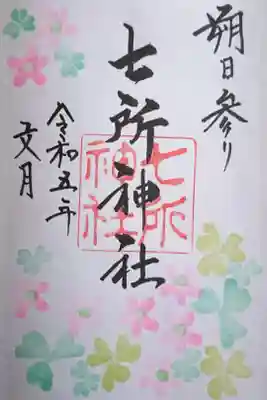 朔日参り
七所神社
七所
神社
令和五年
文月